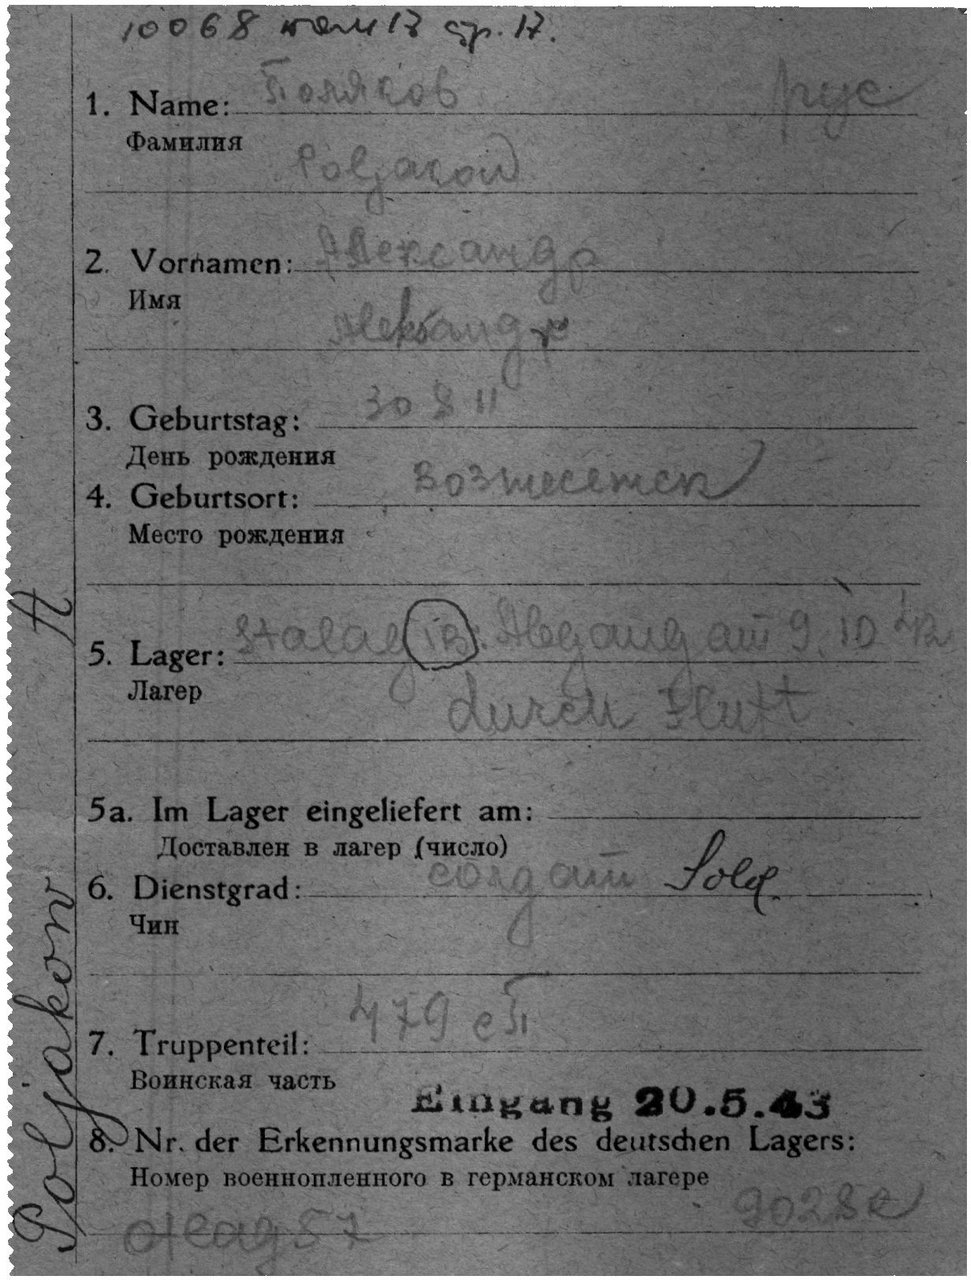 10068 том 13 стр. 17.
1. Name: Поляков рус
Фамилия
Poljakow
2. Vornamen: Александр
Имя
Aleksandr
3. Geburtstag: 30 8 11
День рождения
4. Geburtsort: Вознесенск
Место рождения
5. Lager: Stalag IB. Abgang am 9.10 42
Лагер
durch Fluft
5a. Im Lager eingeliefert am:
Доставлен в лагер (число)
6. Dienstgrad: солдат Sold.
Чин
7. Truppenteil: 479 сп
Воинская часть
Eingang 20.5.43
8. Nr. der Erkennungsmarke des deutschen Lagers:
Номер военнопленного в германском лагере
90282
oflag 57
Poljakow A